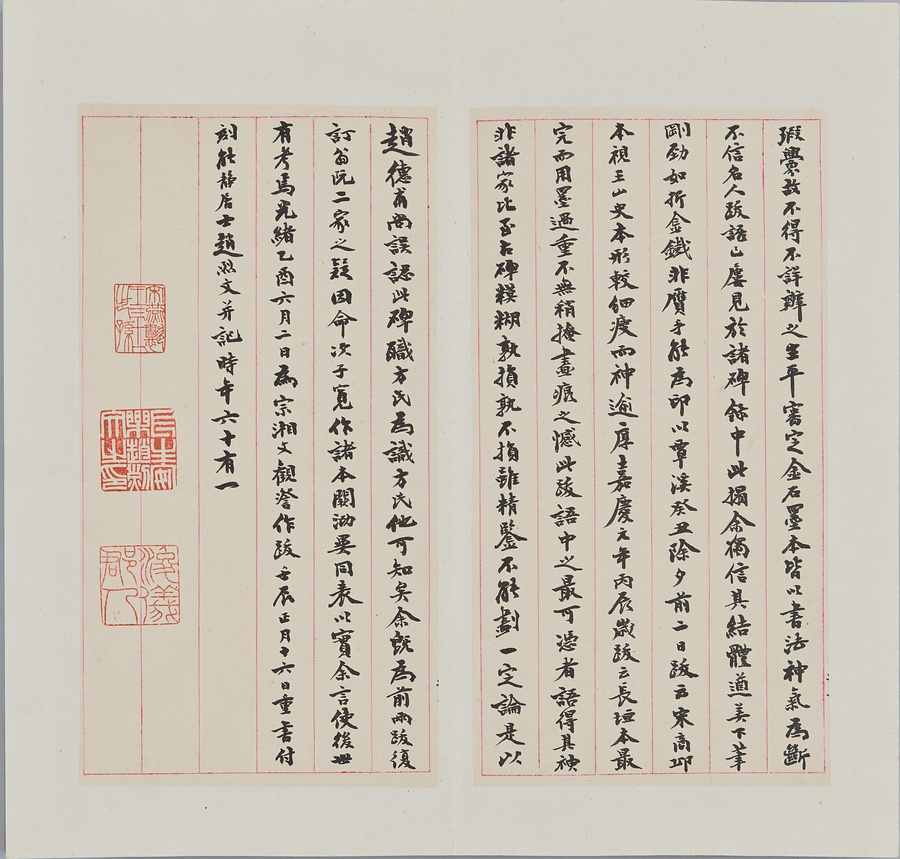 瑕釁故不得不詳辨之生平審定金石墨本皆以書法神氣為斷
不信名人跋語已屢見於諸碑錄中此搨余獨信其結體遒美下筆
剛勁如折金鐵非贋手能為即以覃溪癸丑除夕前二日跋云宋商邱
本視王山史本形較細瘦而神逾厚嘉慶元年丙辰歲跋云長垣本最
完而用墨過重不無稍掩畫痕之憾此跋語中之最可憑者語得其神
非諸家比至古碑糢糊孰損孰不損雖精鑒不能劃一定論是以
趙德甫尚誤認此碑職方氏為識方氏他可知矣余既為前兩跋復
訂翁阮二家之疑因命次子寬作諸本闕泐異同表以實余言使後世
有考焉光緒乙酉六月二日為宗湘文觀詧作跋壬辰正月十六日重書付
刻能靜居士趙烈文并記時年六十有一